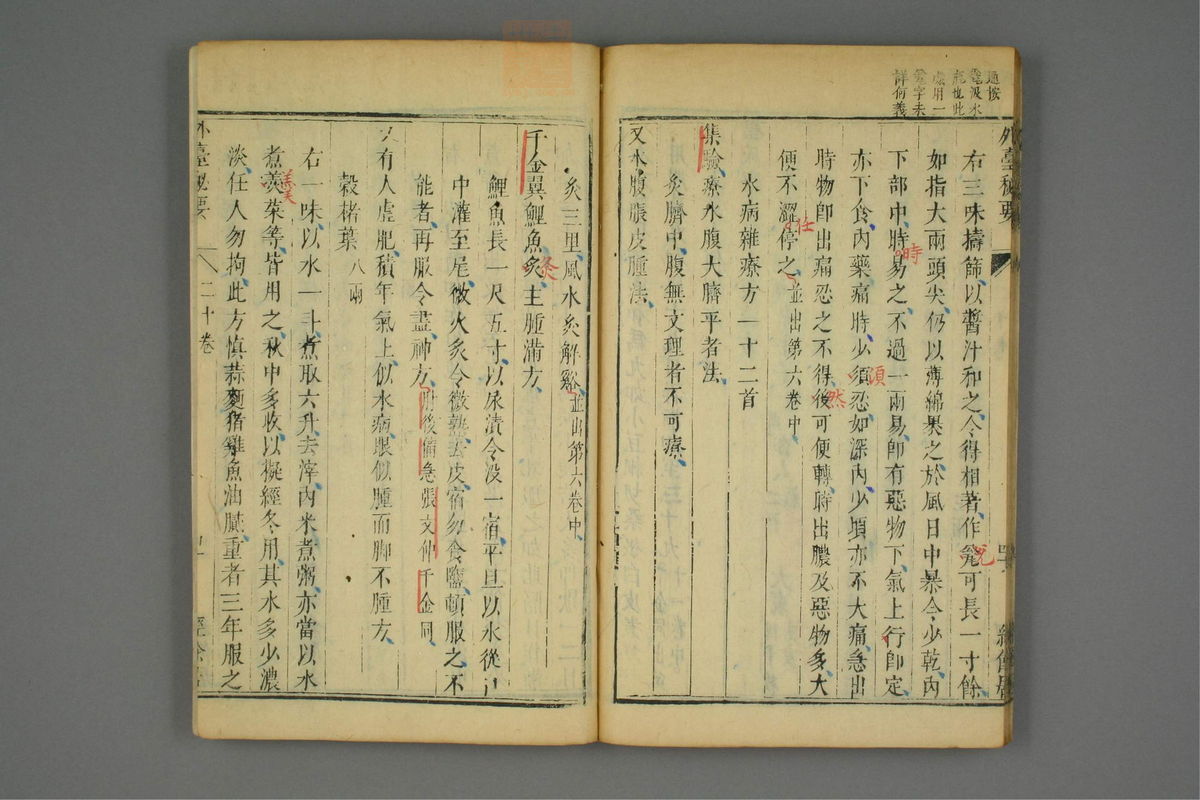 通按
䨄汲水
瓶也此
處用一
䨄字未
詳何義
外臺秘要
右三味擣篩以醬汁和之令得相著作箢可長一寸餘
如指大兩頭尖仍以薄綿裹之於風日中暴令少乾內
下部中時易之不過一兩易即有惡物下氣上行即定
時
亦下食內藥痛時少須忍如深內少頃亦不大痛急出
須
時物即出痛忍之不得後可便轉時出膿及惡物多大
然
便不澀停之並出第六卷中
任
水病雜療方一十二首
集驗療水腹大臍平者法
灸臍中腹無文理者不可療
又水腹脹皮腫法
灸三里風水灸解谿並出第六卷中
千金翼鯉魚炙主腫滿方
鯉魚長一尺五寸以尿漬令沒一宿平旦以水從口
中灌至尾微火炙令微熟去皮宿勿食鹽頓服之不
能者再服令盡神方肘後備急張文仲千金同
又有人虛肥積年氣上似水病眼似腫而脚不腫方
穀楮葉八兩
右一味以水一斗煮取六升去滓內米煮粥亦當以水
煮羹菜等皆用之秋中多收以擬經冬用其水多少濃
淡任人勿拘此方慎蒜麵猪雞魚油膩重者三年服之
外臺秘要
二十卷